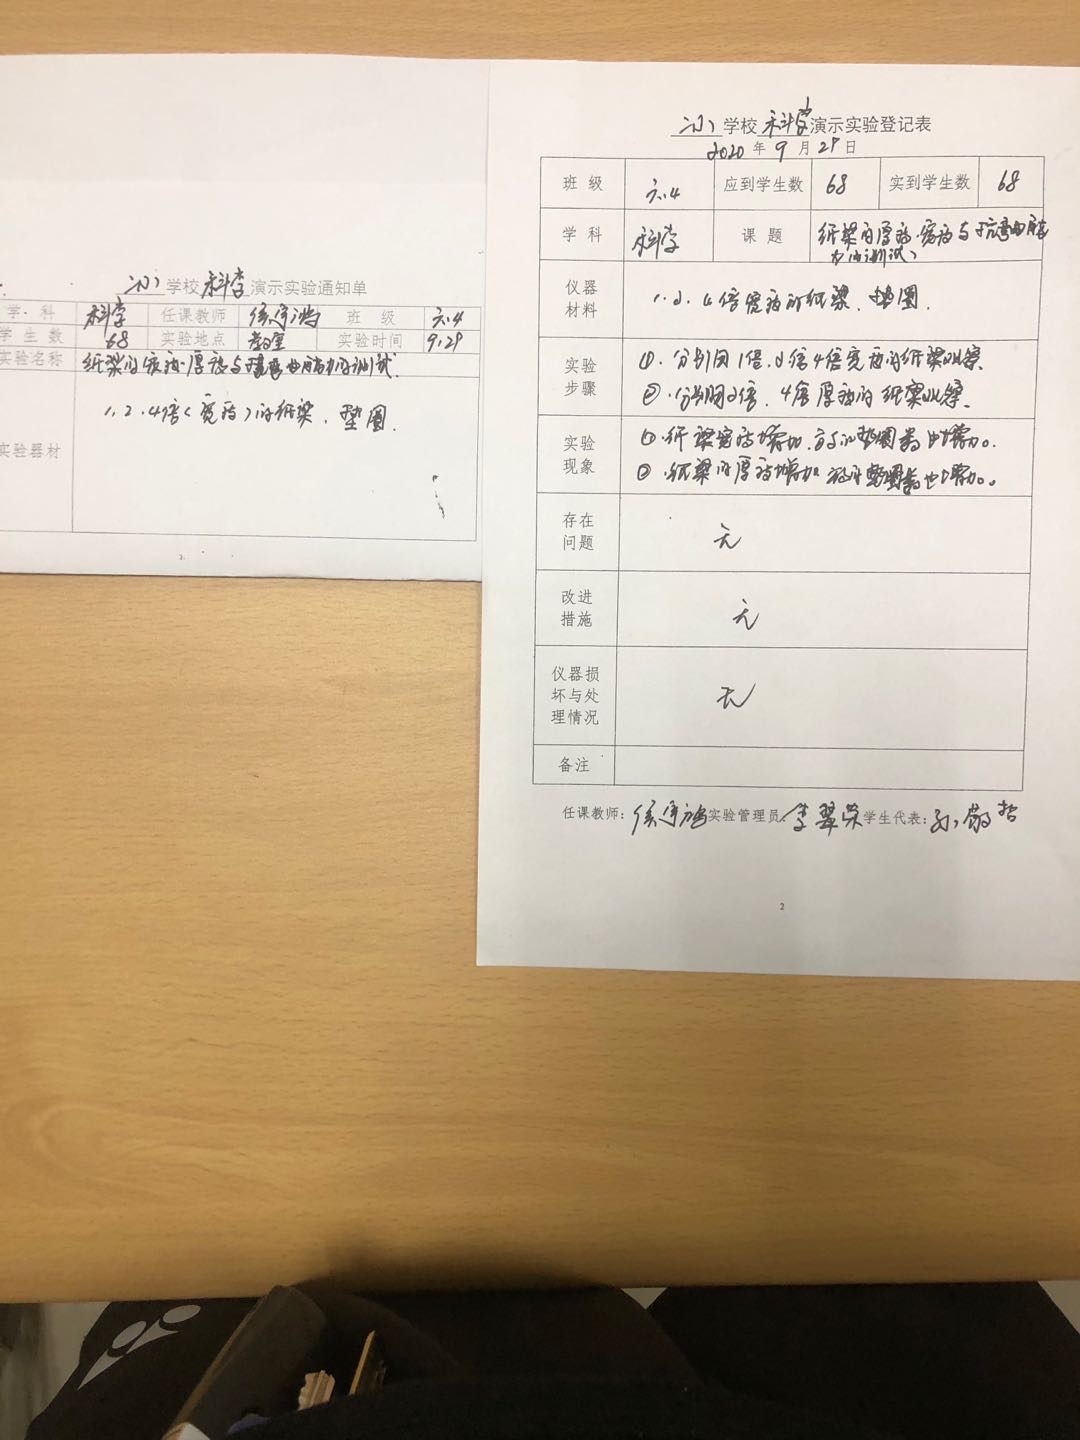 学校 科学 演示实验通知单
学 科 科学 任课教师 班 级 六.4
学 生 数 68 实验地点 教室 实验时间 9.29
实验名称 纸梁的宽度.厚度与抗弯曲能力的测试.
实验器材 1.2.4倍(宽度)的纸梁.垫圈.
2
学校 科学 演示实验登记表
2020 年 9 月 29 日
班 级 六.4 应到学生数 68 实到学生数 68
学 科 科学 课 题 纸梁的厚度.宽度与抗弯曲能
力的测试
仪器
材料
1.2.4倍宽度的纸梁.垫圈.
实验
步骤
①.分别用1倍.2倍4倍宽度的纸梁观察.
②.分别用2倍.4倍厚度的纸梁观察.
实验
现象
①.纸梁宽度增加.垫圈数也增加。
②.纸梁的厚度增加 垫圈数也增加。
存在
问题
无
改进
措施
无
仪器损
坏与处
理情况
无
备注
任课教师: 实验管理员: 李翠荣 学生代表:
2